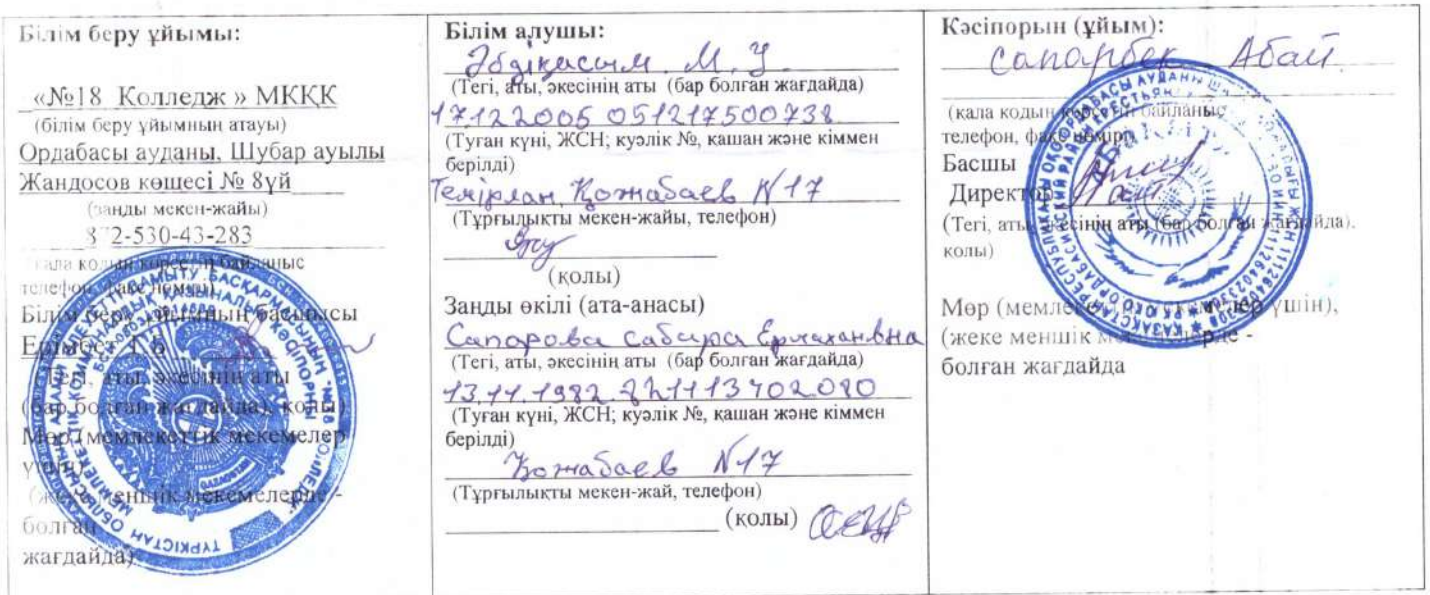 Білім беру ұйымы:
«№18 Колледж » МКҚК
(білім беру ұйымның атауы)
Ордабасы ауданы, Шубар ауылы
Жандосов көшесі № 8үй
(заңды мекен-жайы)
872-530-43-283
(қала кодын көрсетіп байланыс
телефон, факс нөмірі)
Білім беру ұйымының басшысы
Ерімбет
Тегі, аты, әкесінің аты
(бар болған жағдайда), қолы)
Мөр (мемлекеттік мекемелер
үшін),
(жеке меншік мекемелерде -
болған
жағдайда)
Білім алушы:
Әбдіқасым М. У.
(Тегі, аты, әкесінің аты (бар болған жағдайда)
17.12.2005 051217500738
(Туған күні, ЖСН; куәлік №, қашан және кіммен
берілді)
Темірлан, Қожабаев N17
(Тұрғылықты мекен-жайы, телефон)
(қолы)
Заңды өкілі (ата-анасы)
Сапарова Сабира
(Тегі, аты, әкесінің аты (бар болған жағдайда)
13.11.1982 821113402080
(Туған күні, ЖСН; куәлік №, қашан және кіммен
берілді)
Қожабаев N17
(Тұрғылықты мекен-жай, телефон)
(қолы)
Кәсіпорын (ұйым):
Сапарбек Абай
(қала кодын көрсетіп байланыс
телефон, факс нөмірі)
Басшы
Директор
(Тегі, аты, әкесінің аты (бар болған жағдайда),
қолы)
Мөр (мемлекеттік мекемелер үшін),
(жеке меншік мекемелерде -
болған жағдайда